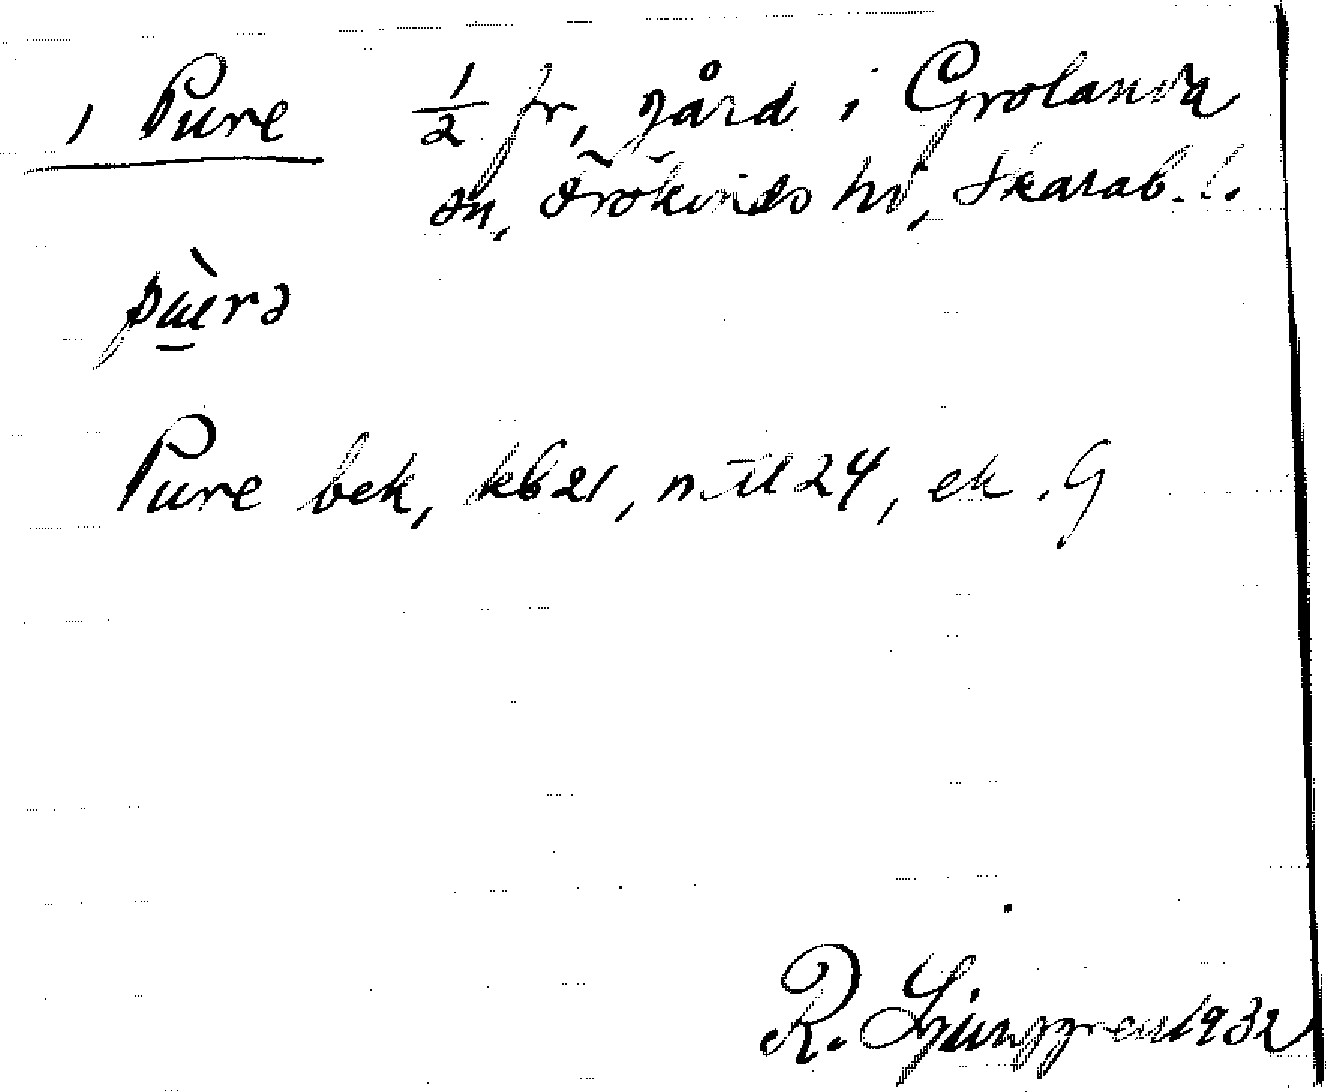 1 Pure 1/2 fr, gård i Grolanda
sn, Frökinds hd, Skarab. l.
pu̠èrə
Pure bek, kb 21, n till 24, ek. G
R. Ljunggren 1932